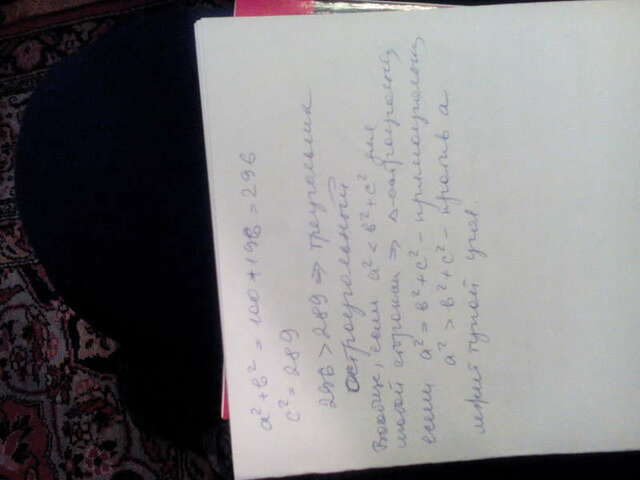 a² + в² = 100 + 196 = 296
c² = 289
296 > 289 ⇒ треугольник
остроугольный
Вообще, если a² < в² + c² для
любой стороны ⇒ Δ-остроугольн,
если a² = в² + c² - прямоугольн
a² > в² + c² - против a
лежит тупой угол.